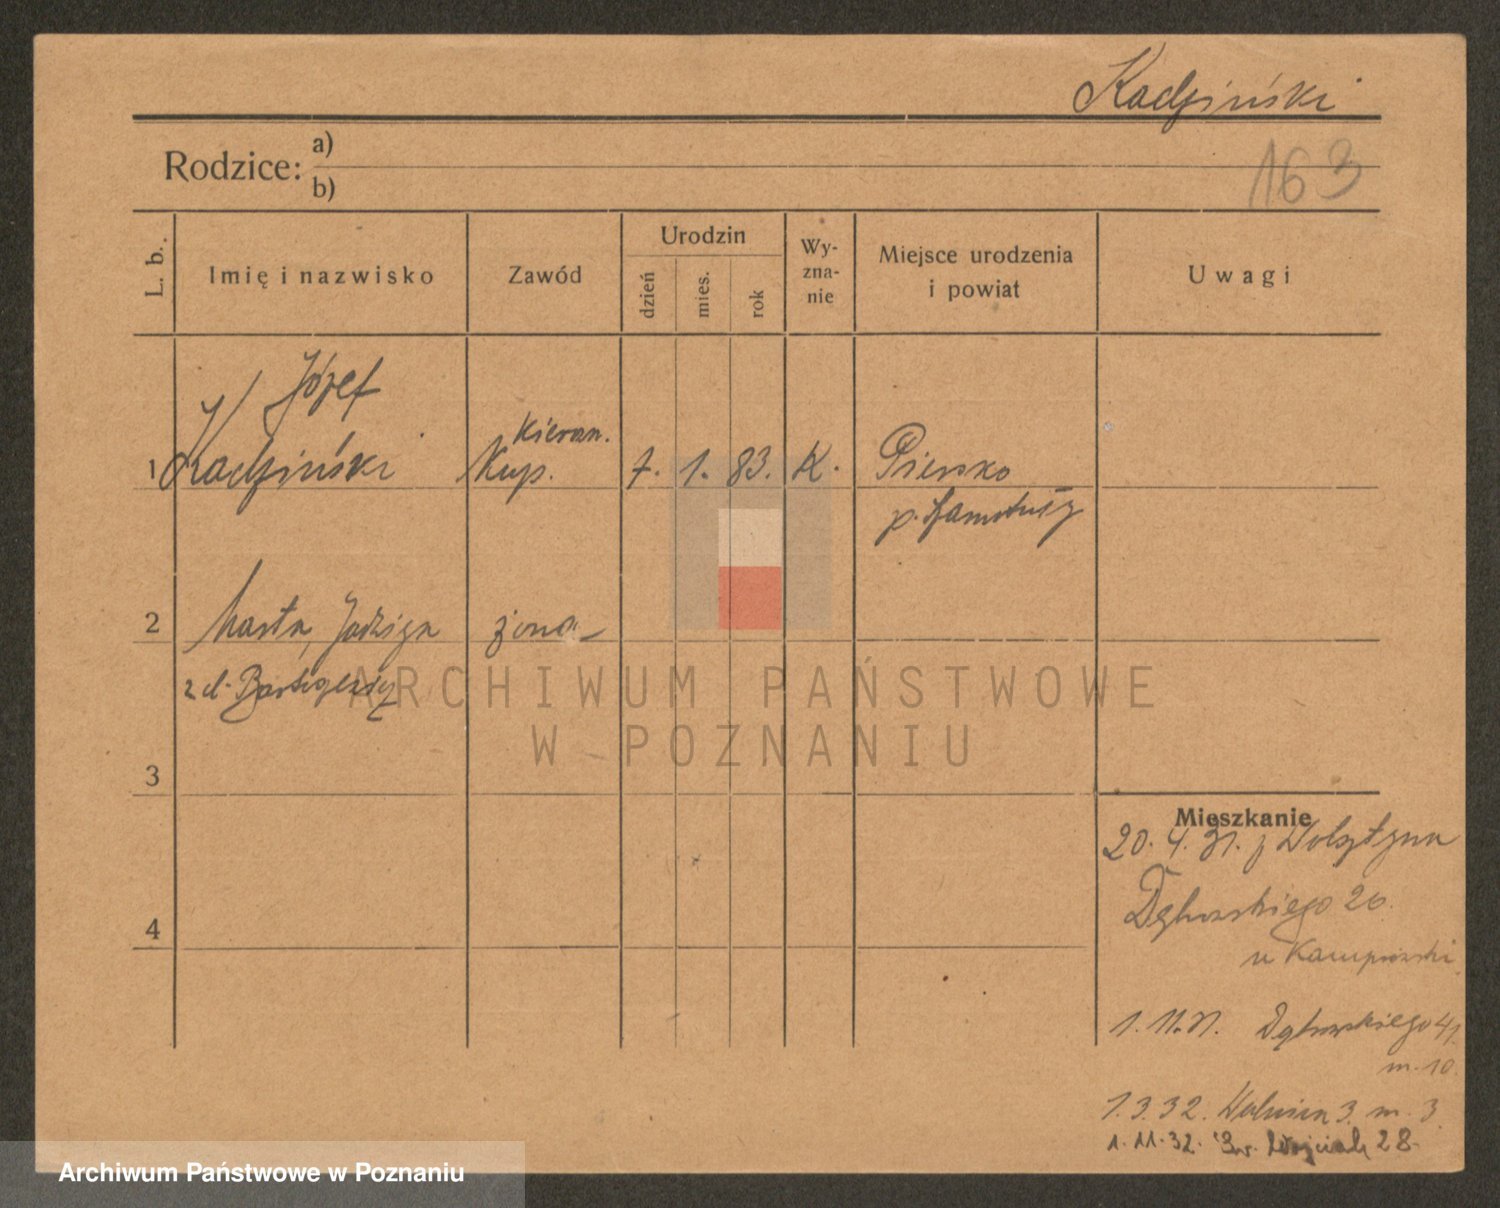 Kadziński
Rodzice: a)
b)
163
L. b.
Imię i nazwisko
Zawód
Urodzin
dzień
mies.
rok
Wy-
zna-
nie
Miejsce urodzenia
i powiat
Uwagi
Józef
1 Kadziński
Kierow.
Kup.
7. 1. 83. K.
Piersko
p. Szamotuły
2 Marta, Jadwiga żona
z d.
3
4
Mieszkanie
20. 4. 31. z Wolsztyna
Dąbrowskiego 20.
u
1. 11. 31. Dąbrowskiego 41.
m. 10.
1. 3. 32. 3. m. 3
1. 11. 32. Św. Wojciech 28.
ARCHIWUM PAŃSTWOWE
W POZNANIU
Archiwum Państwowe w Poznaniu